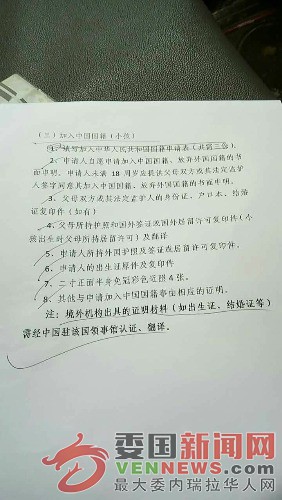 (三)加入中国国籍(小孩)
1、填写加入中华人民共和国国籍申请表(共需三份)。
2、申请人自愿申请加入中国国籍、放弃外国国籍的书
面申明。申请人未满 18 周岁应提供父母双方或其法定监护
人签字同意其加入中国国籍、放弃外国国籍的书面申明。
3、父母双方或其法定监护人的身份证、户口本、结婚
证复印件(如有)
4、父母所持护照和国外签证或国外居留许可复印件(小
孩出生时父母所持居留许可)及翻译
5、申请人所持外国护照及签证或居留许可复印件。
6、申请人的出生证原件及复印件
7、二寸正面半身免冠彩色近照 4 张。
8、其他与申请加入中国国籍事宜相应的证明。
注:境外机构出具的证明材料(如出生证、结婚证等)
需经中国驻该国领事馆认证、翻译。
委国新闻网
VENNEWS.COM
最大委内瑞拉华人网